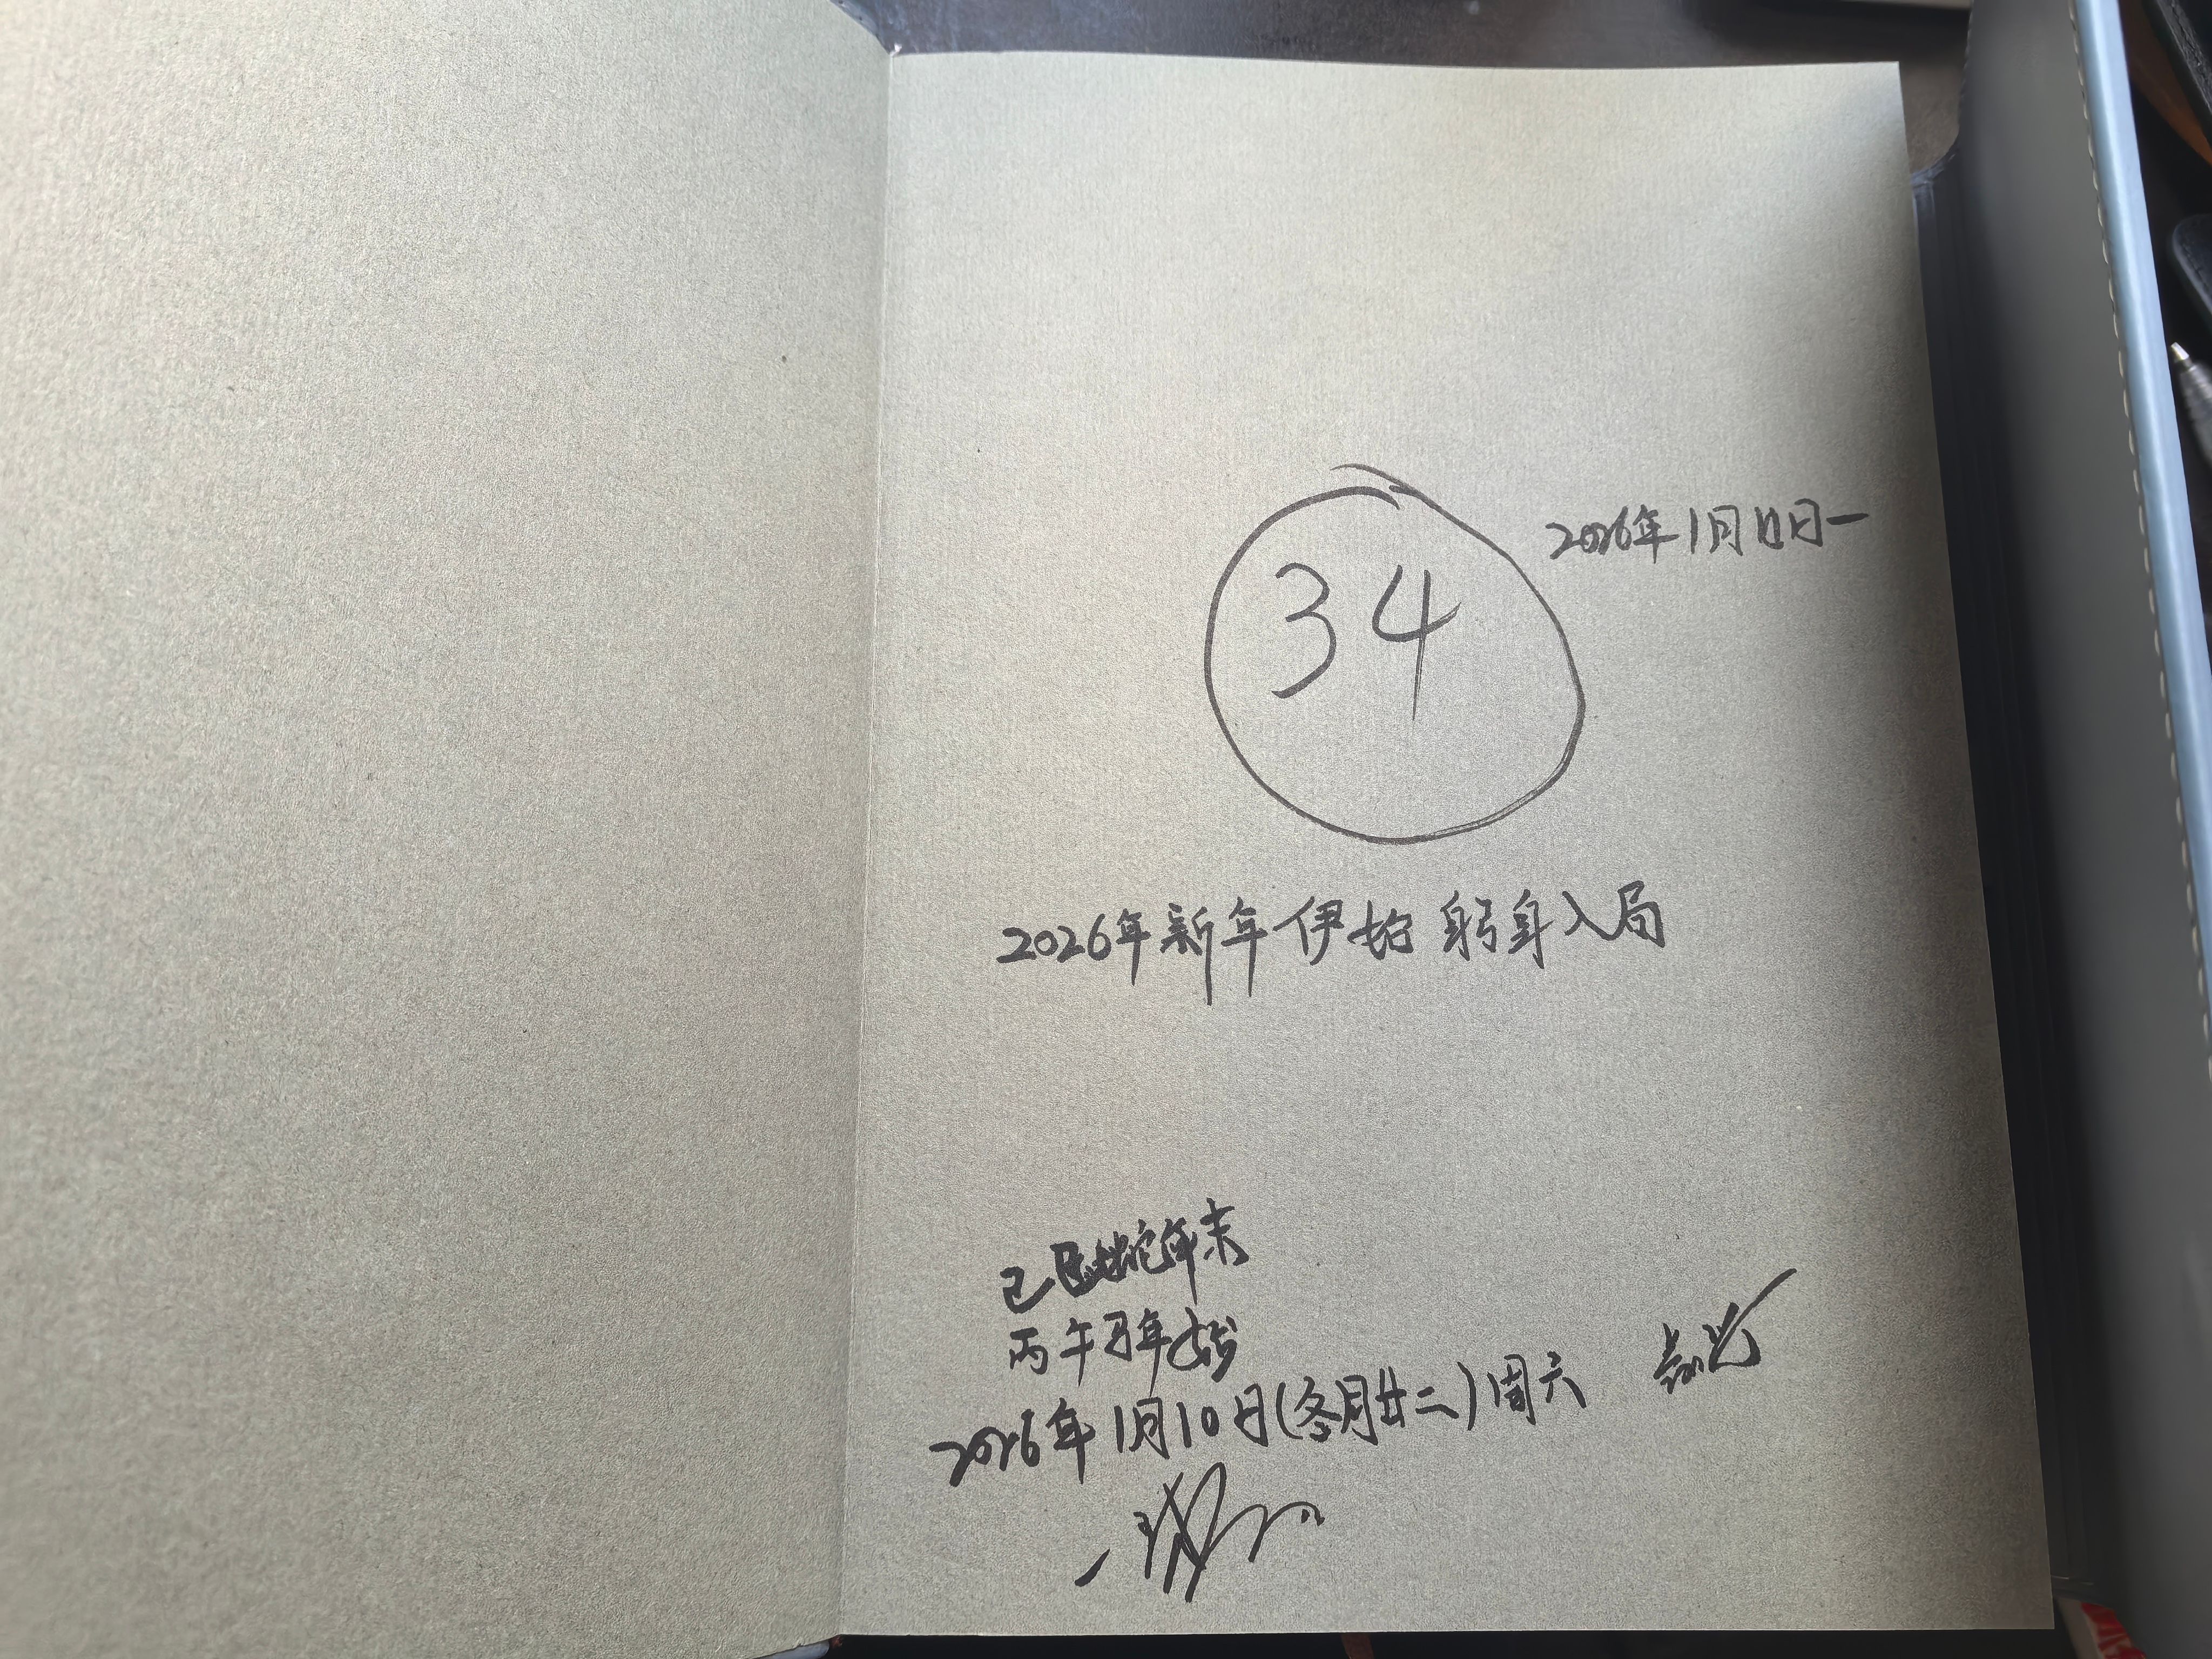 2026年1月11日一
34
2026年新年伊始 躬身入局
已巳蛇年末
丙午马年始
2026年1月10日(冬月廿二)周六